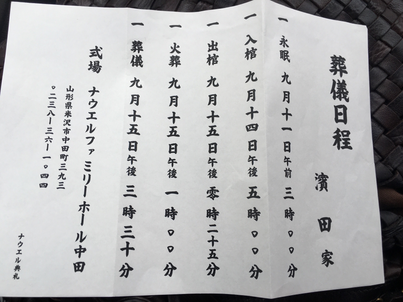 葬儀日程
濱田家
一 永眠 九月十一日午前 三時〇〇分
一 入棺 九月十四日午後 五時〇〇分
一 出棺 九月十五日午後 零時二十五分
一 火葬 九月十五日午後 一時〇〇分
一 葬儀 九月十五日午後 三時三十分
式場 ナウエルファミリーホール中田
山形県米沢市中田町三九三
〇二三八ー三六ー一〇四四
ナウエル典礼